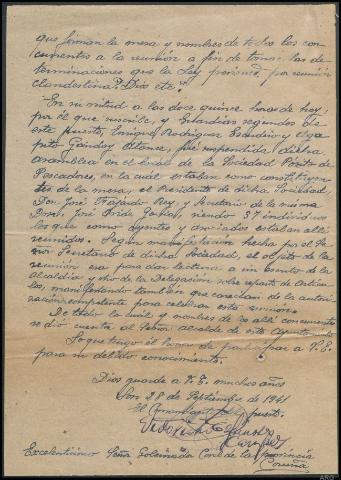 que forman la mesa y nombres de todos los con-
currentes a la reunión a fin de tomar las de-
terminaciones que la Ley por reunión
clandestina? Dios etc."
En su mitud a las doce quince horas de hoy,
por él que suscribe, y Guardias segundos de
este puesto, Enrique Rodriguez y Aga-
pito fué suspendida dicha
asamblea en el local de la Sociedad Pósito de
Pescadores, en la cuál estaban como constituyen-
tes de la mesa, el Presidente de dicha Sociedad
Don José Fajardo Rey, y Secretario de la misma
Don José siendo 37 individuos
los que como oyentes y asociados estaban allí
reunidos. Según manifestación hecha por el Se-
ñor Secretario de dicha Sociedad, el objeto de la
reunión era para dar lectura a un escrito de la
alcaldia y otro de la Delegación sobre reparto de articu-
los, manifestando también que carecian de la autori-
zación competente para celebrar esta reunión.
De todo lo cuál y nombres de los allí concurrentes
se dió cuenta al Señor alcalde de este Ayuntamiento
Lo que tengo el honor de participar a V.E.
para su debido conocimiento.
Dios guarde a V.E. muchos años
28 de Septiembre de 1941
El Comandante del puesto.
Excelentisimo Señor Gobernador Civil de la provincia
Coruña
ARG